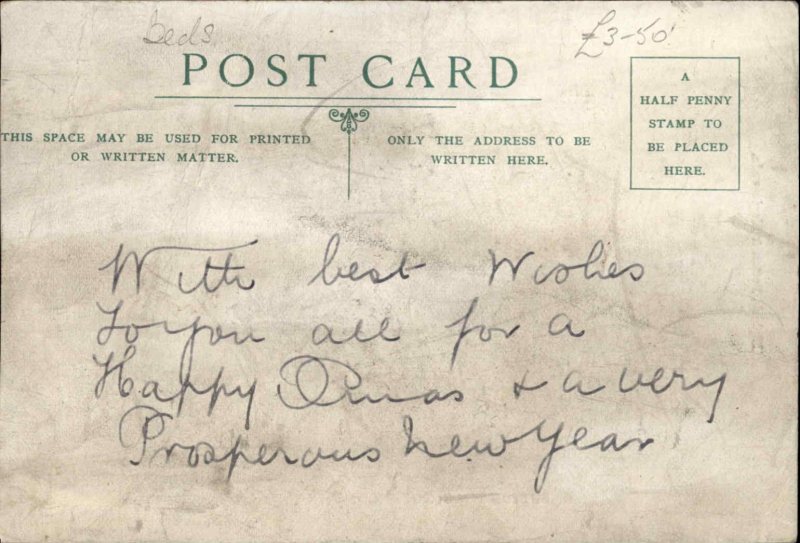 Beds
£3-50
POST CARD
THIS SPACE MAY BE USED FOR PRINTED
OR WRITTEN MATTER.
ONLY THE ADDRESS TO BE
WRITTEN HERE.
A
HALF PENNY
STAMP TO
BE PLACED
HERE.
With best Wishes
to you all for a
Happy Xmas & a very
Prosperous New Year